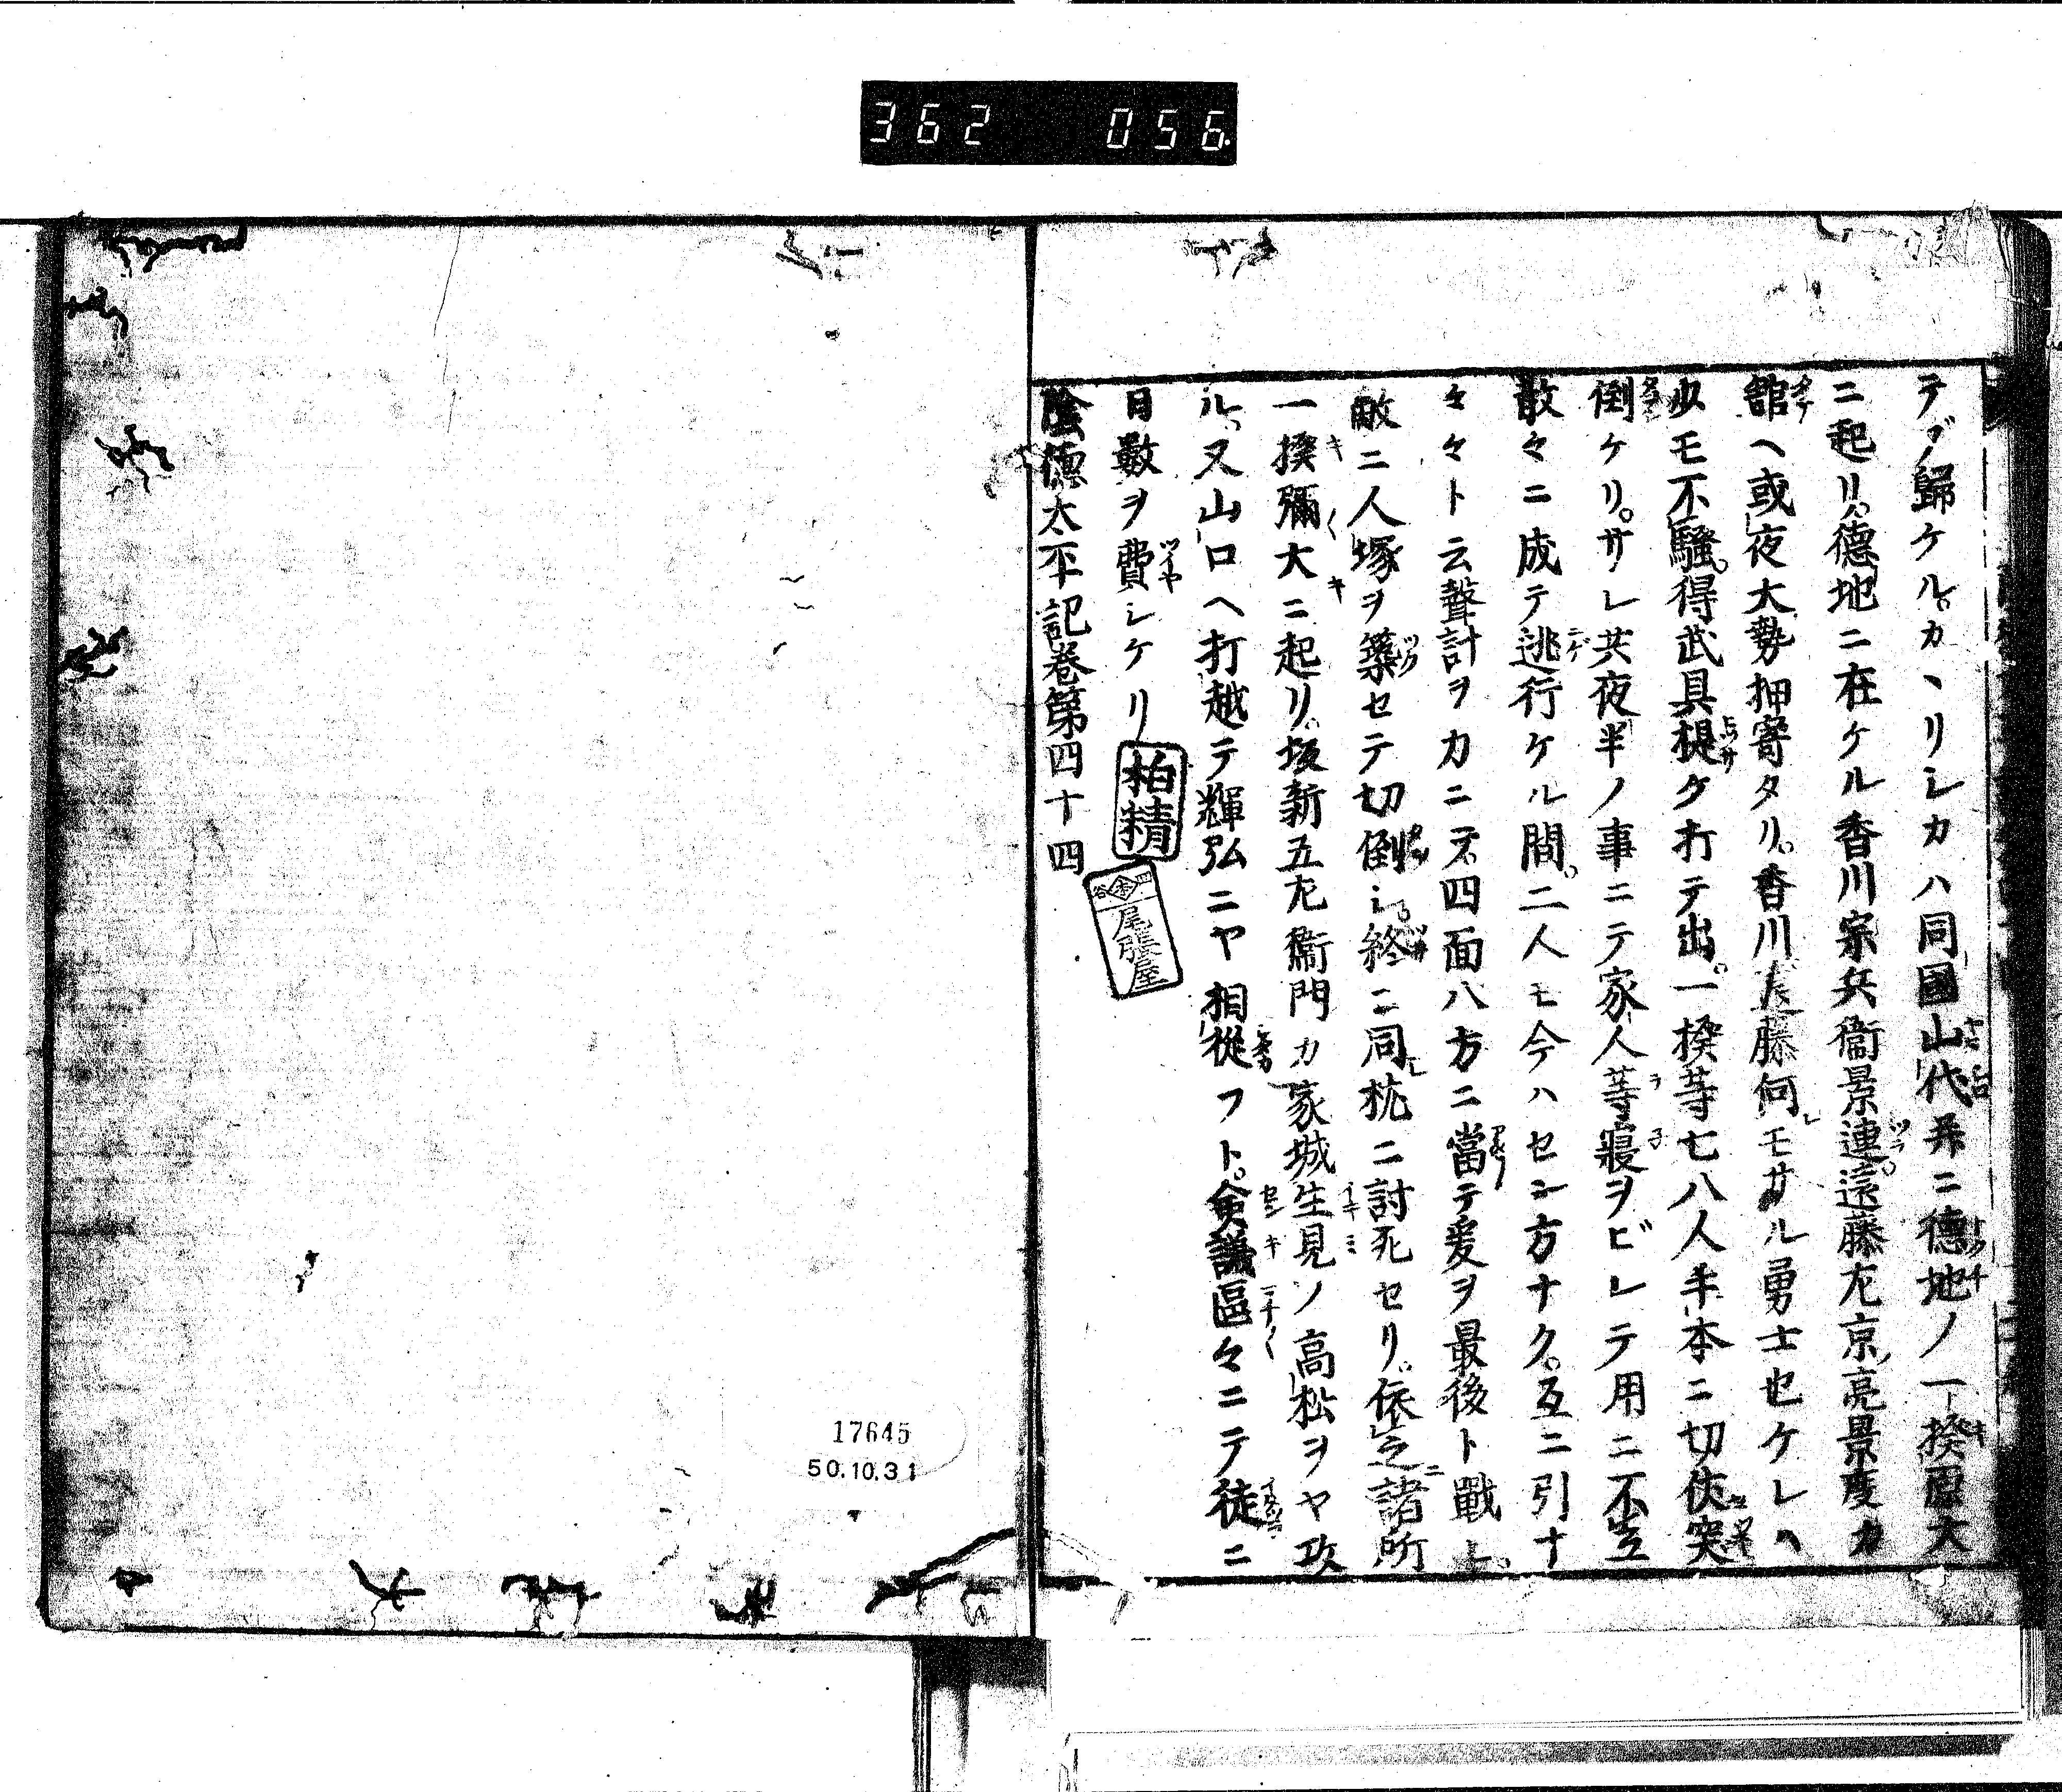 362 056
テゾ歸ケルカヽリシカハ同國山代并ニ德地ノ一揆原大
ニ起リ德地ニ在ケル香川宗兵衞景連遠藤左京亮景度カ
舘ヘ或夜大勢押寄タリ香川遠藤何モサル勇士也ケレハ
少モ不騷得武具提ケ打テ出一揆等七八人手本ニ切伏突
倒ケリサレ共夜半ノ事ニテ家人等寢ヲビレテ用ニ不立
散々ニ成テ逃行ケル間二人モ今ハセン方ナク互ニ引ナ
々々ト云聲計ヲカニテ四面八方ニ當テ爰ヲ最後ト戰上
敵ニ人塚ヲ築セテ切倒シ終ニ同枕ニ討死セリ依之諸所
一揆彌大ニ起リ坂新五左衞門カ家城生見ノ高松ヲヤ攻
ル又山口ヘ打越テ輝弘ニヤ相從フト僉議區々ニテ徒ニ
日數ヲ費シケリ
柏精
尾張屋
陰德太平記卷第四十四
17645
50.10.31